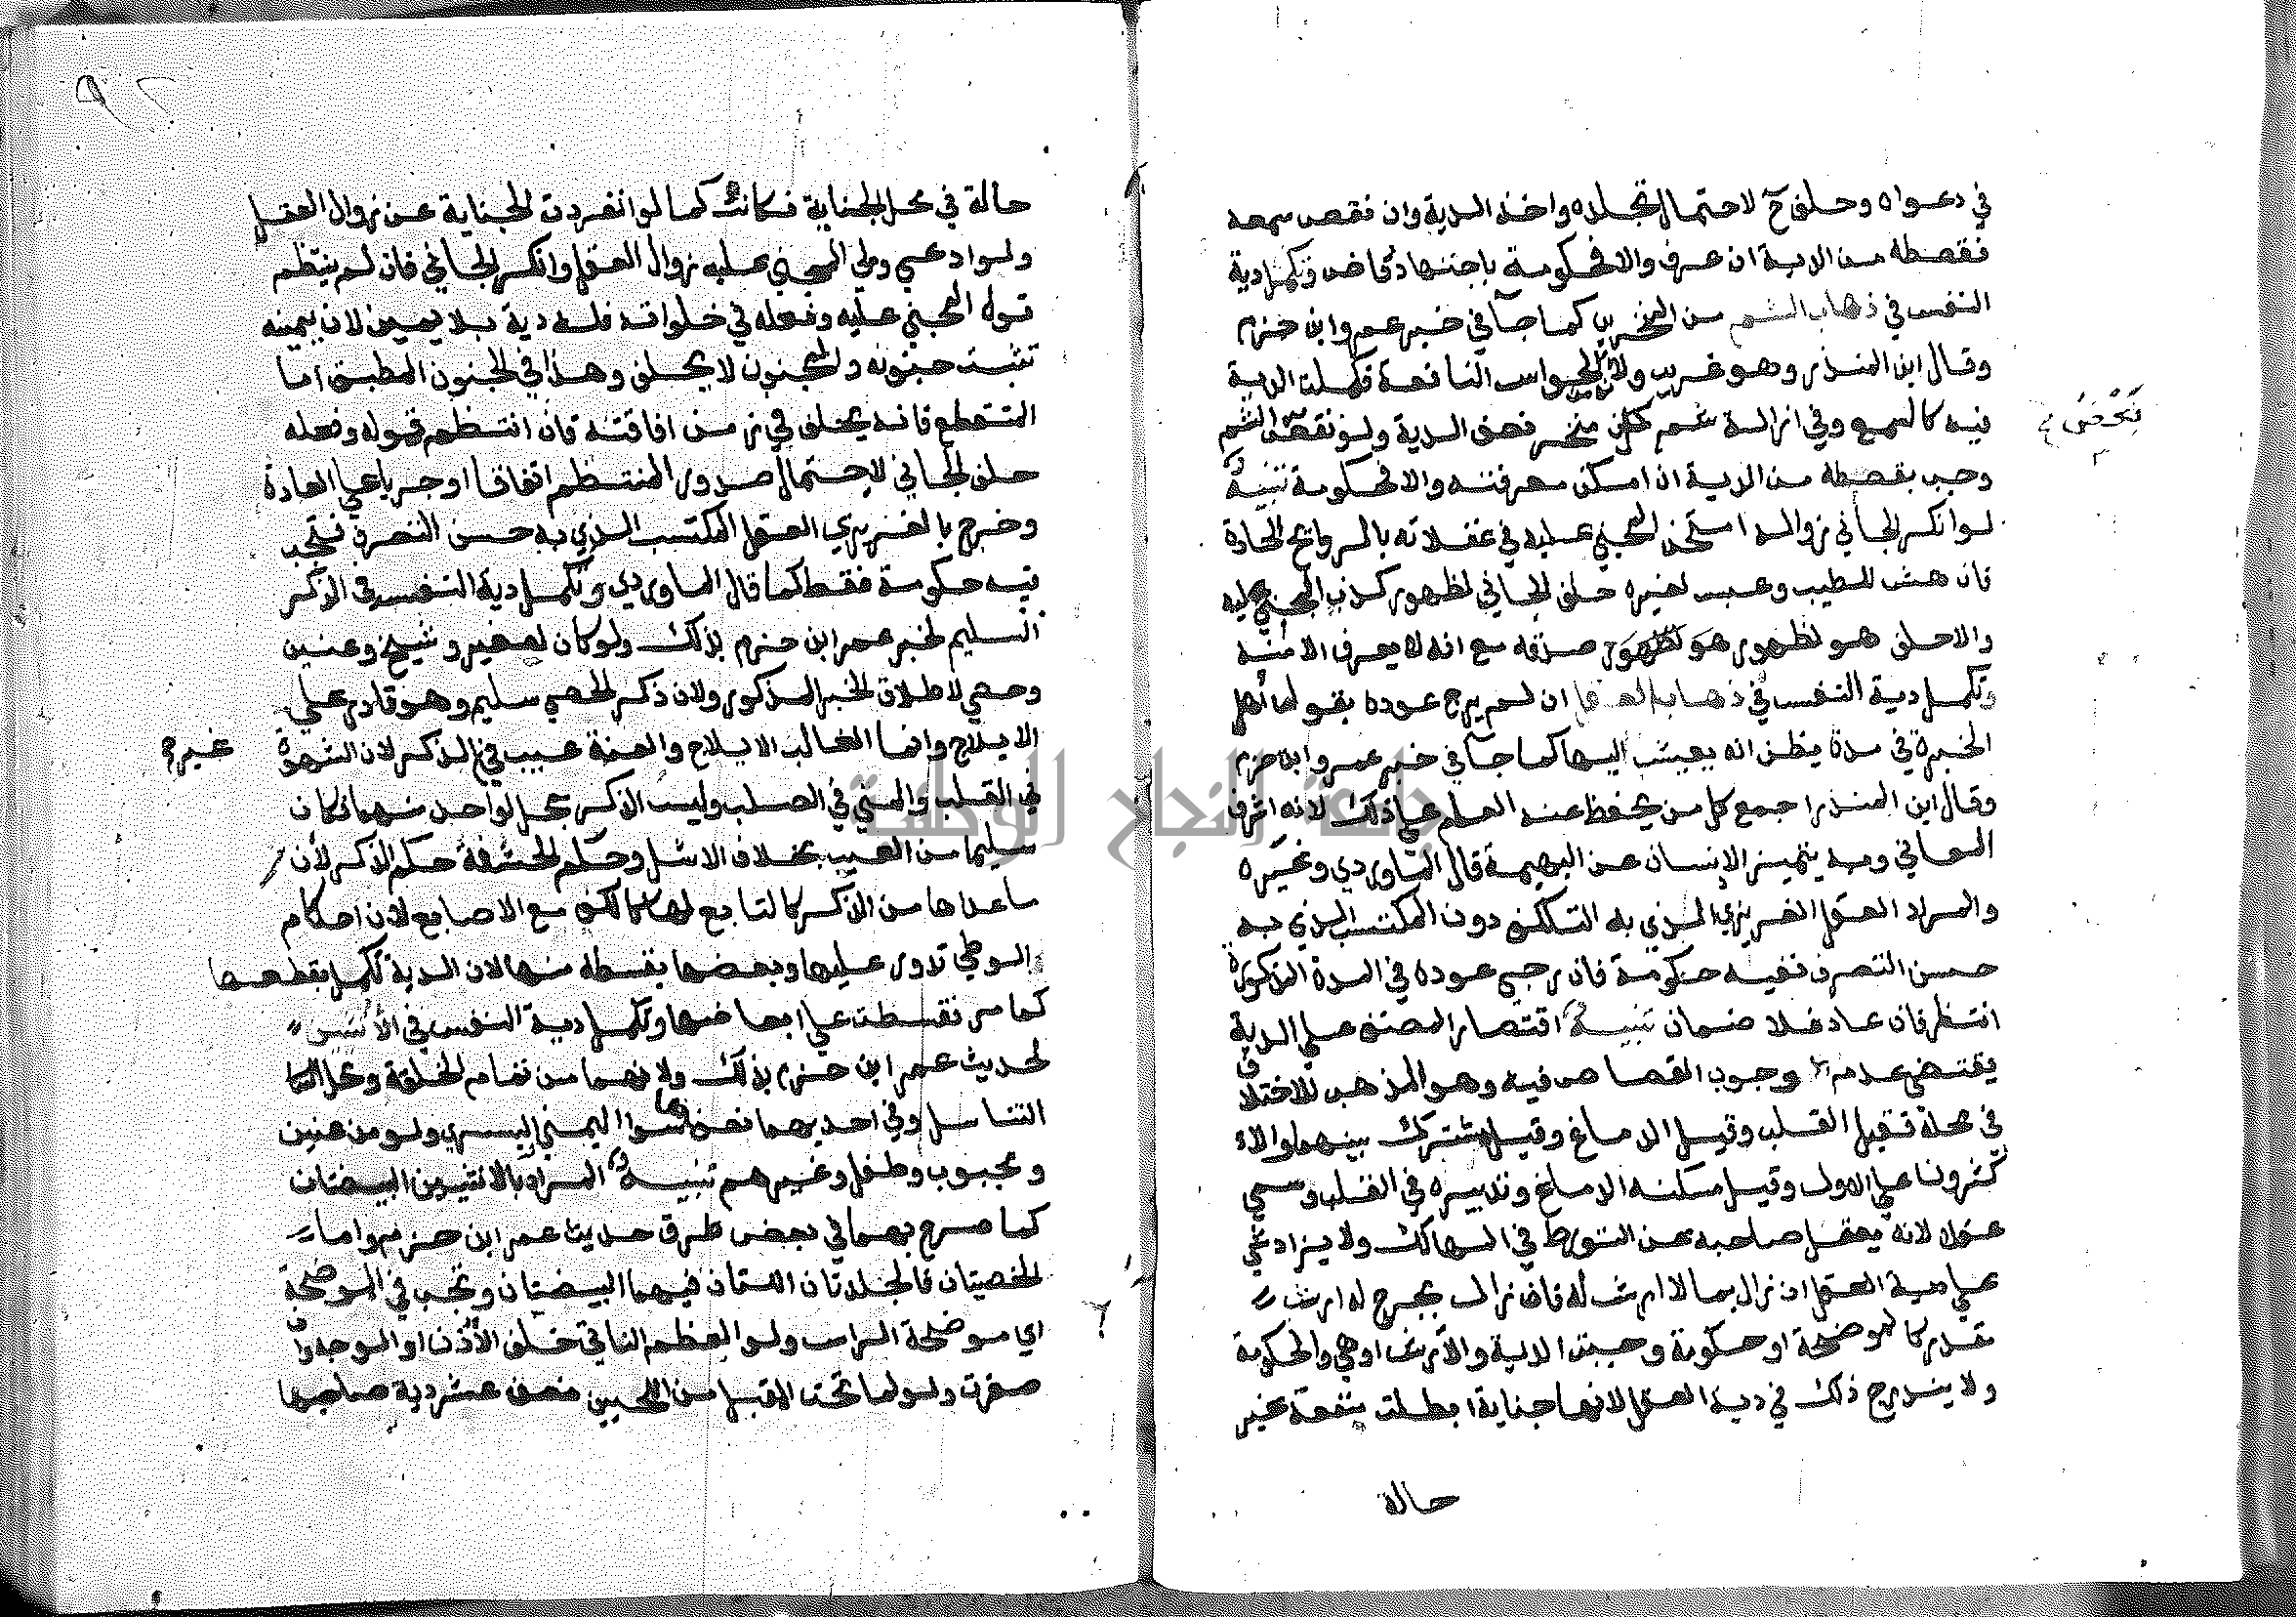 في دعواه وحلف ح لاحتمال تجلده واخذ الدية وان نقص سمعه
فقسطه من الدية ان عرف والا فحكومة باجتهاد قاض وتكمل دية
النفس في ذهاب الشم من المنخرين كما جآ في خبر عمرو ابن حزم
وقال ابن المنذر وهو غريب ولانه من الحواس النافعة فكملت الدية
فيه كالسمع وفي ازالة شم كل منخر نصف الدية ولو نقص الشم
وجب بقسطه من الدية ان امكن معرفته والا فحكومة تنبيه
لو انكر الجاني زواله امتحن المجني عليه في غفلاته بالروائح الحادة
فان هش للطيب وعبس لغيره حلف الجاني لظهور كذب المجني عليه
والا حلف هو لظهور صدقه مع انه لا يعرف الا منه
وتكمل دية النفس في ذهاب العقل ان لم يرج عوده بقول اهل
الخبرة في مدة يظن انه يعيش اليها كما جآ في خبر عمرو ابن حزم
وقال ابن المنذر اجمع كل من يحفظ عنه العلم على ذلك لانه اشرف
المعاني وبه يتميز الانسان عن البهيمة قال الماوردي وغيره
والمراد العقل الغريزي الذي به التكلف دون المكتسب الذي به
حسن التصرف ففيه حكومة فان رجي عوده في المدة المذكورة
انتظر فان عاد فلا ضمان تنبيه اقتصار المصنف على الدية
يقتضي عدم وجوب القصاص فيه وهو المذهب للاختلاف
في محله فقيل القلب وقيل الدماغ وقيل مشترك بينهما والا
كثرون على الاول وقيل مسكنه الدماغ وتدبيره في القلب وسمي
عقلا لانه يعقل صاحبه عن التورط في المهالك ولا يزاد شي
على دية العقل ان زال بما لا ارش له فان زال بجرح له ارش
مقدر كالموضحة او حكومة وجبت الدية والارش او هي والحكومة
ولا يندرج ذلك في دية العقل لانها جناية ابطلت منفعة غير
حالة
حالة في محل الجناية فكانت كما لو انفردت الجناية عن زوال العقل
ولو ادعى ولي المجني عليه زوال العقل وانكر الجاني فان لم ينتظم
قول المجني عليه وفعله في خلواته فله دية بلا يمين لان يمينه
تثبت جنونه والمجنون لا يحلف وهذا في الجنون المطبق اما
المتقطع فانه يحلف في زمن افاقته فان انتظم قوله وفعله
حلف الجاني لاحتمال صدور المنتظم اتفاقا او جريا على العادة
وخرج بالغريزي العقل المكتسب الذي به حسن التصرف فتجب
فيه حكومة فقط كما قال الماوردي وتكمل دية النفس في الذكر
السليم لخبر عمر ابن حزم بذلك ولو كان لصغير وشيخ وعنين
وخصي لاطلاق الخبر المذكور ولان ذكر الخصي سليم وهو قادر على
الايلاج وانما الفائت الايلاد والعنة عيب في غير الذكر لان الشهوة
في القلب والمني في الصلب وليس الذكر بمحل لواحد منهما فكان
سليما من العيب بخلاف الاشل وحكم الحشفة حكم الذكر لأن
ما عداها من الذكر كالتابع لها كالكف مع الاصابع لان احكام
الوطي تدور عليها وبعضها بقسطه منها لان الدية تكمل بقطعها
كما مر فقسطت على ابعاضها وتكمل دية النفس في الأنثيين
لحديث عمر ابن حزم بذلك ولانهما من تمام الخلقة ومحل
التناسل وفي احديهما نصفها سوا اليمنى اليسرى ولو من عنين
ومجبوب وطفل وغيرهم تنبيه المراد بالانثيين البيضتان
كما صرح بهما في بعض طرق حديث عمر ابن حزم واما
الخصيتان فالجلدتان اللتان فيهما البيضتان وتجب في الموضحة
اي موضحة الراس ولو العظم الناتي خلف الأذن او الوجه وان
صغرت ولو لما تحت المقبل من اللحيين نصف عشر دية صاحبها
جامعة النجاح الوطنية